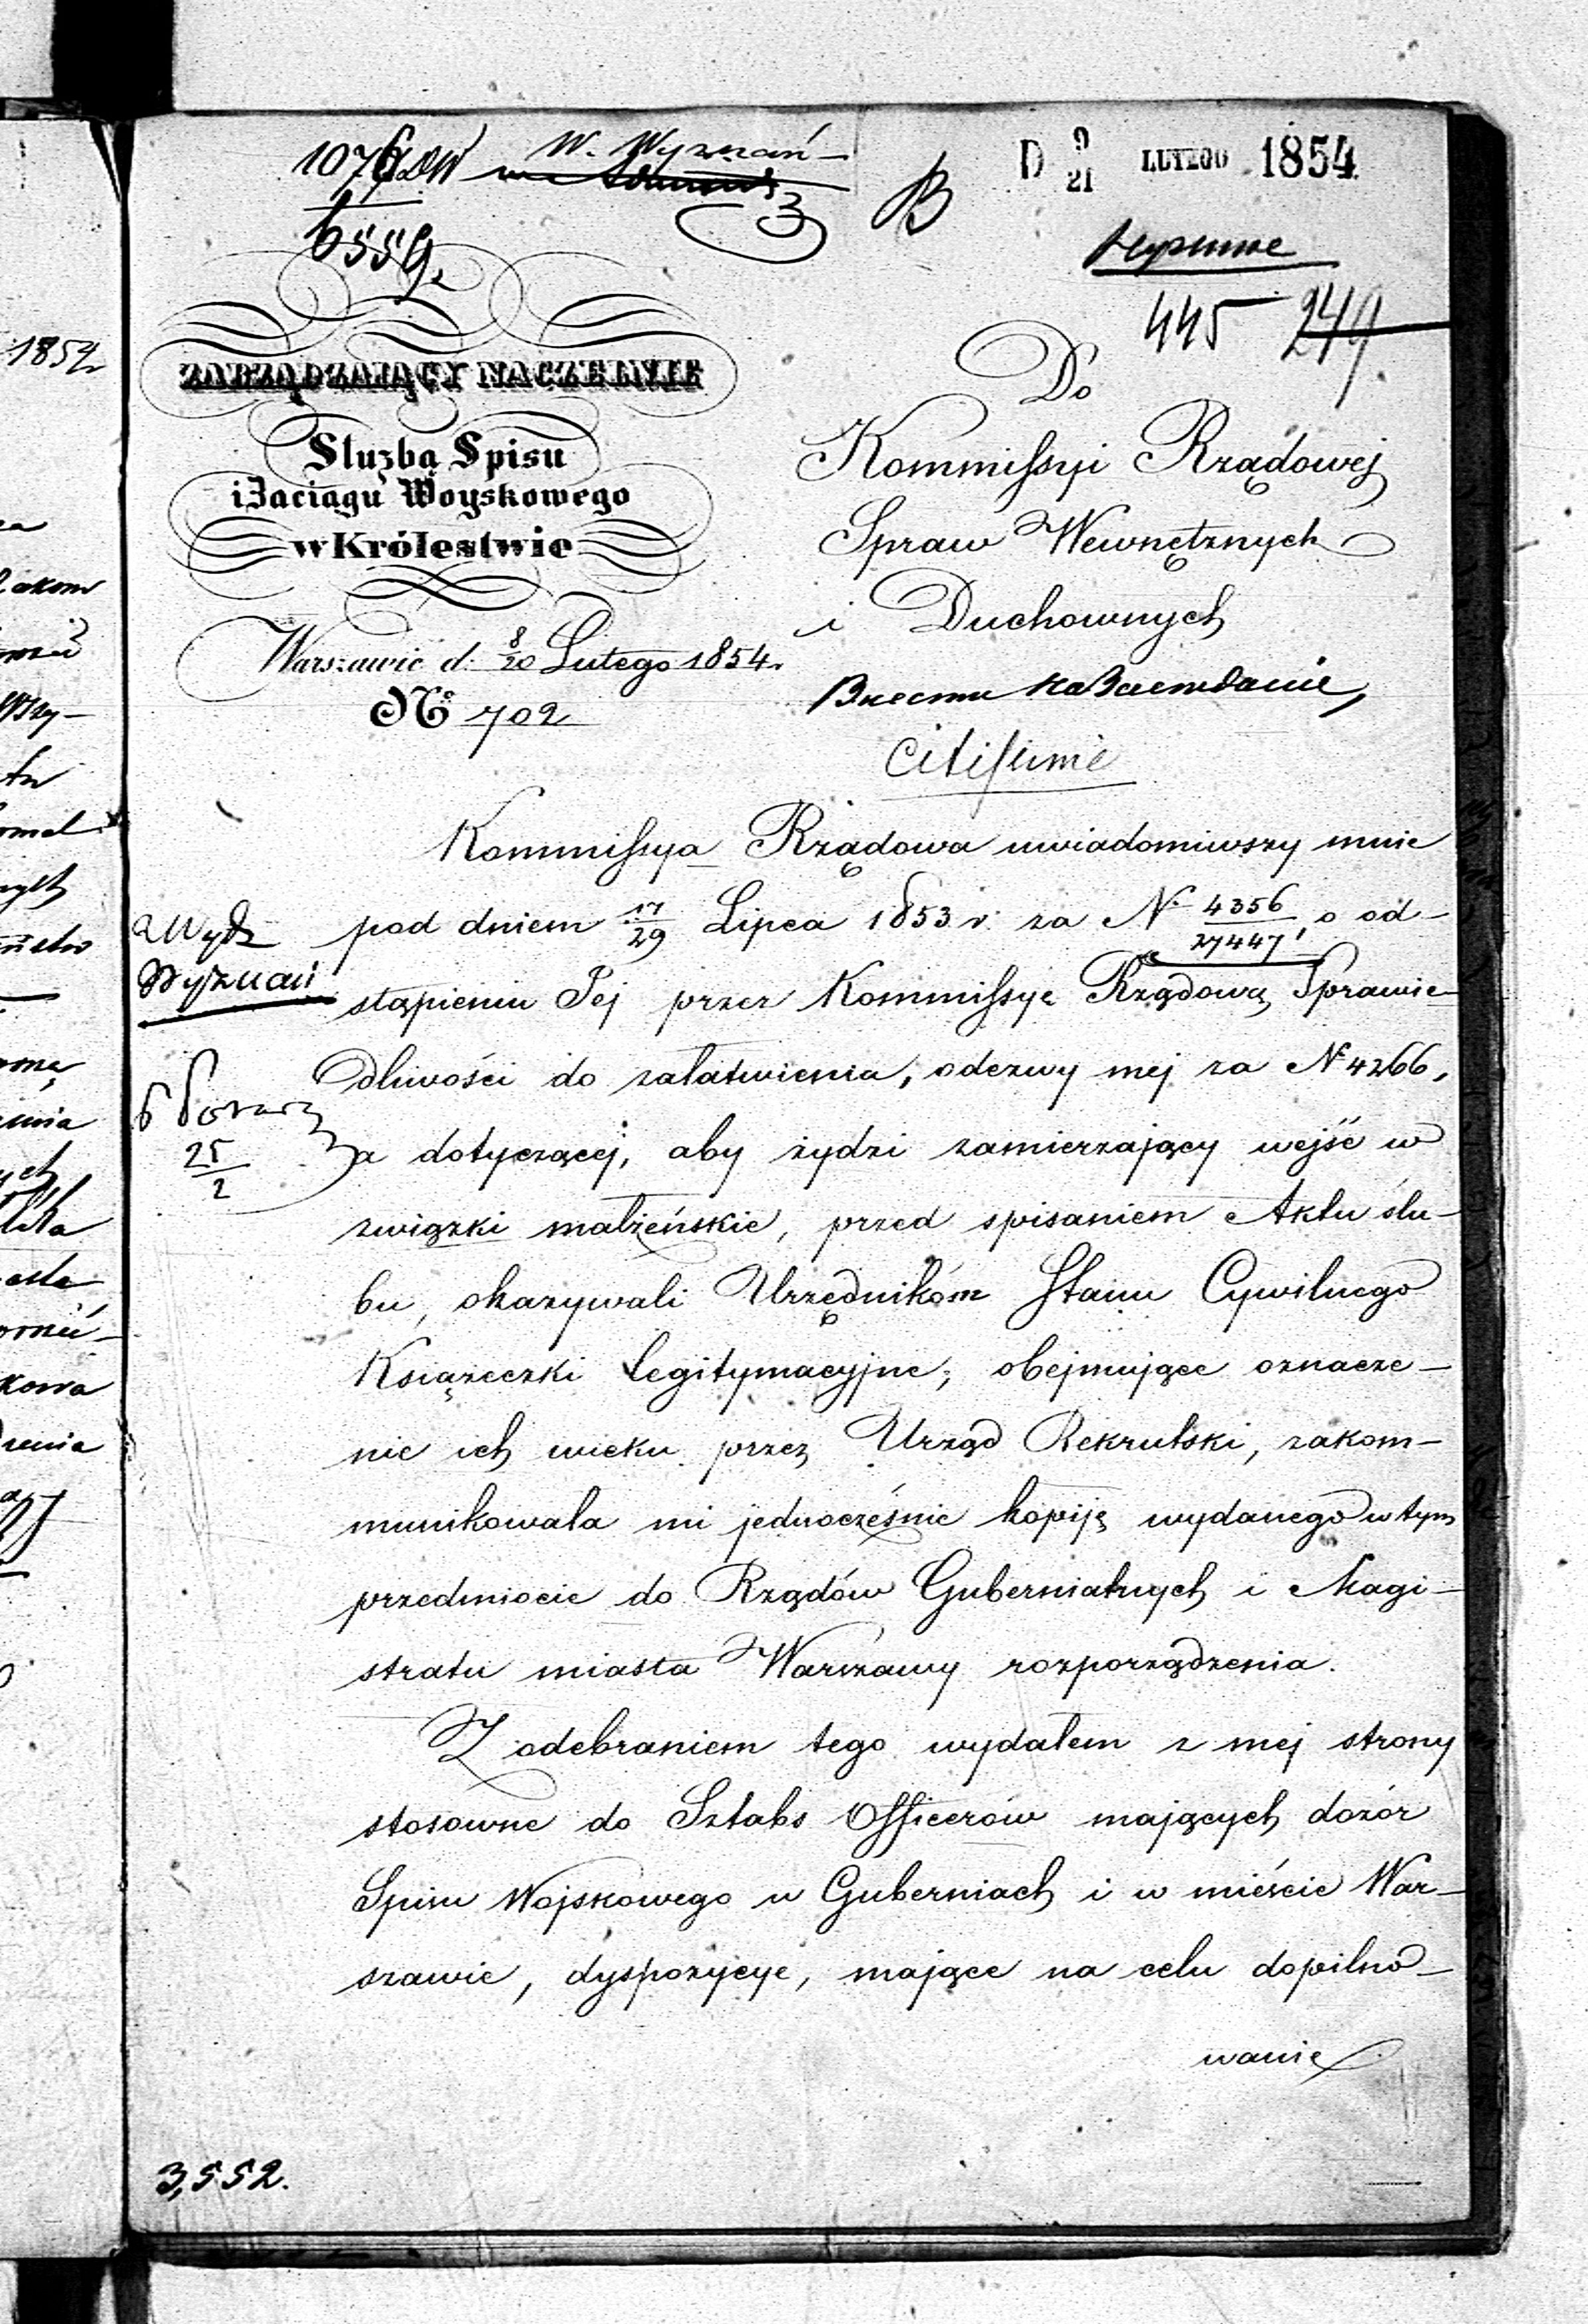 W. Wyznań
6559
B
D 9/21 LUTEGO 1854
445 249
ZARZĄDZAIĄCY NACZELNIE
Służbą Spisu
i Zaciągu Woyskowego
w Królestwie
Warszawie d. 8/20 Lutego 1854.
No 702
Do
Kommissyi Rządowej
Spraw Wewnętrznych
i Duchownych
citissime
Kommissya Rządowa uwiadomiwszy mnie
pod dniem 17/29 Lipca 1853 r. za N. 4356/27447, o od-
stąpieniu Jej przez Kommissyę Rządową Sprawie-
dliwości do załatwienia, odezwy mej za N 4266,
a dotyczącej, aby żydzi zamierzający wejść w
związki małżeńskie, przed spisaniem Aktu ślu-
bu, okazywali Urzędnikóm Stanu Cywilnego
Książeczki Legitymacyjne, obejmujące oznacze-
nie ich wieku przez Urząd Rekrutski, zakom-
munikowała mi jednocześnie kopiję wydanego w tym
przedmiocie do Rządów Gubernialnych i Magi-
stratu miasta Warszawy rozporządzenia.
Z odebraniem tego wydałem z mej strony
stosowne do Sztabs Officerów mających dozór
Spisu Wojskowego w Guberniach i w mieście War-
szawie, dyspozycye, mające na celu dopilno-
wanie
Wyznań
25/2
3,552.
1854